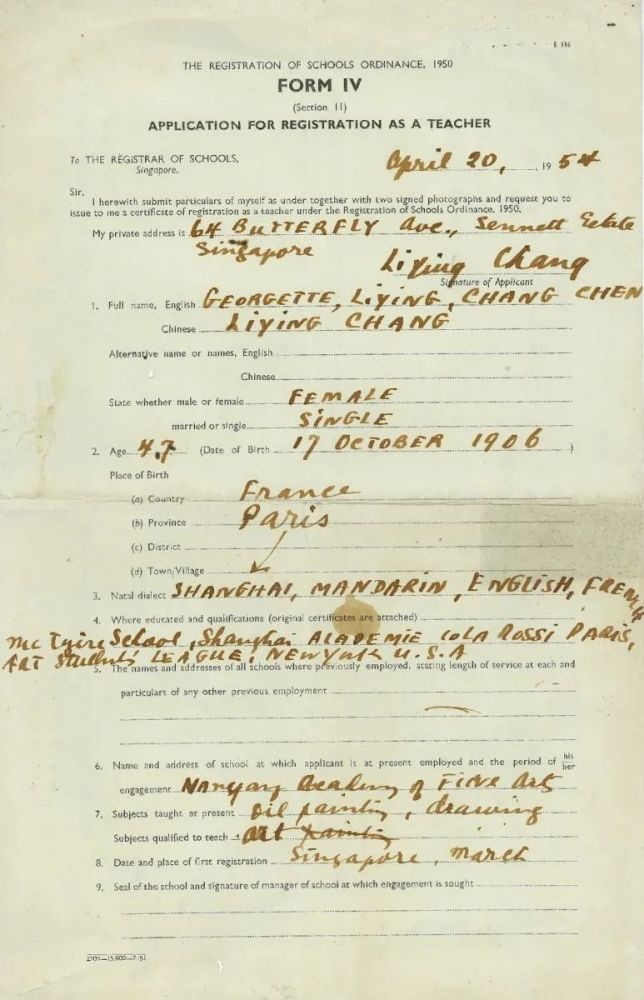 E 136
THE REGISTRATION OF SCHOOLS ORDINANCE, 1950
FORM IV
(Section 11)
APPLICATION FOR REGISTRATION AS A TEACHER
To THE REGISTRAR OF SCHOOLS,
Singapore.
April 20, 1954
Sir,
I herewith submit particulars of myself as under together with two signed photographs and request you to
issue to me a certificate of registration as a teacher under the Registration of Schools Ordinance, 1950.
My private address is 64 BUTTERFLY Ave., Sennett Estate
Singapore
Liying Chang
Signature of Applicant
1. Full name, English GEORGETTE, LIYING, CHANG CHEN
Chinese LIYING CHANG
Alternative name or names, English
Chinese
State whether male or female FEMALE
married or single SINGLE
2. Age 47 (Date of Birth 17 OCTOBER 1906)
Place of Birth
(a) Country France
(b) Province Paris
(c) District
(d) Town/Village
3. Natal dialect SHANGHAI, MANDARIN, ENGLISH, FRENCH
4. Where educated and qualifications (original certificates are attached)
Mc Tyire School, Shanghai ACADEMIE COLA ROSSI PARIS,
ART Students LEAGUE, NEW York U.S.A
5. The names and addresses of all schools where previously employed, stating length of service at each and
particulars of any other previous employment
6. Name and address of school at which applicant is at present employed and the period of his/her
engagement Nanyang Academy of Fine Arts
7. Subjects taught at present Oil painting, drawing
Subjects qualified to teach Art painting
8. Date and place of first registration Singapore, March
9. Seal of the school and signature of manager of school at which engagement is sought